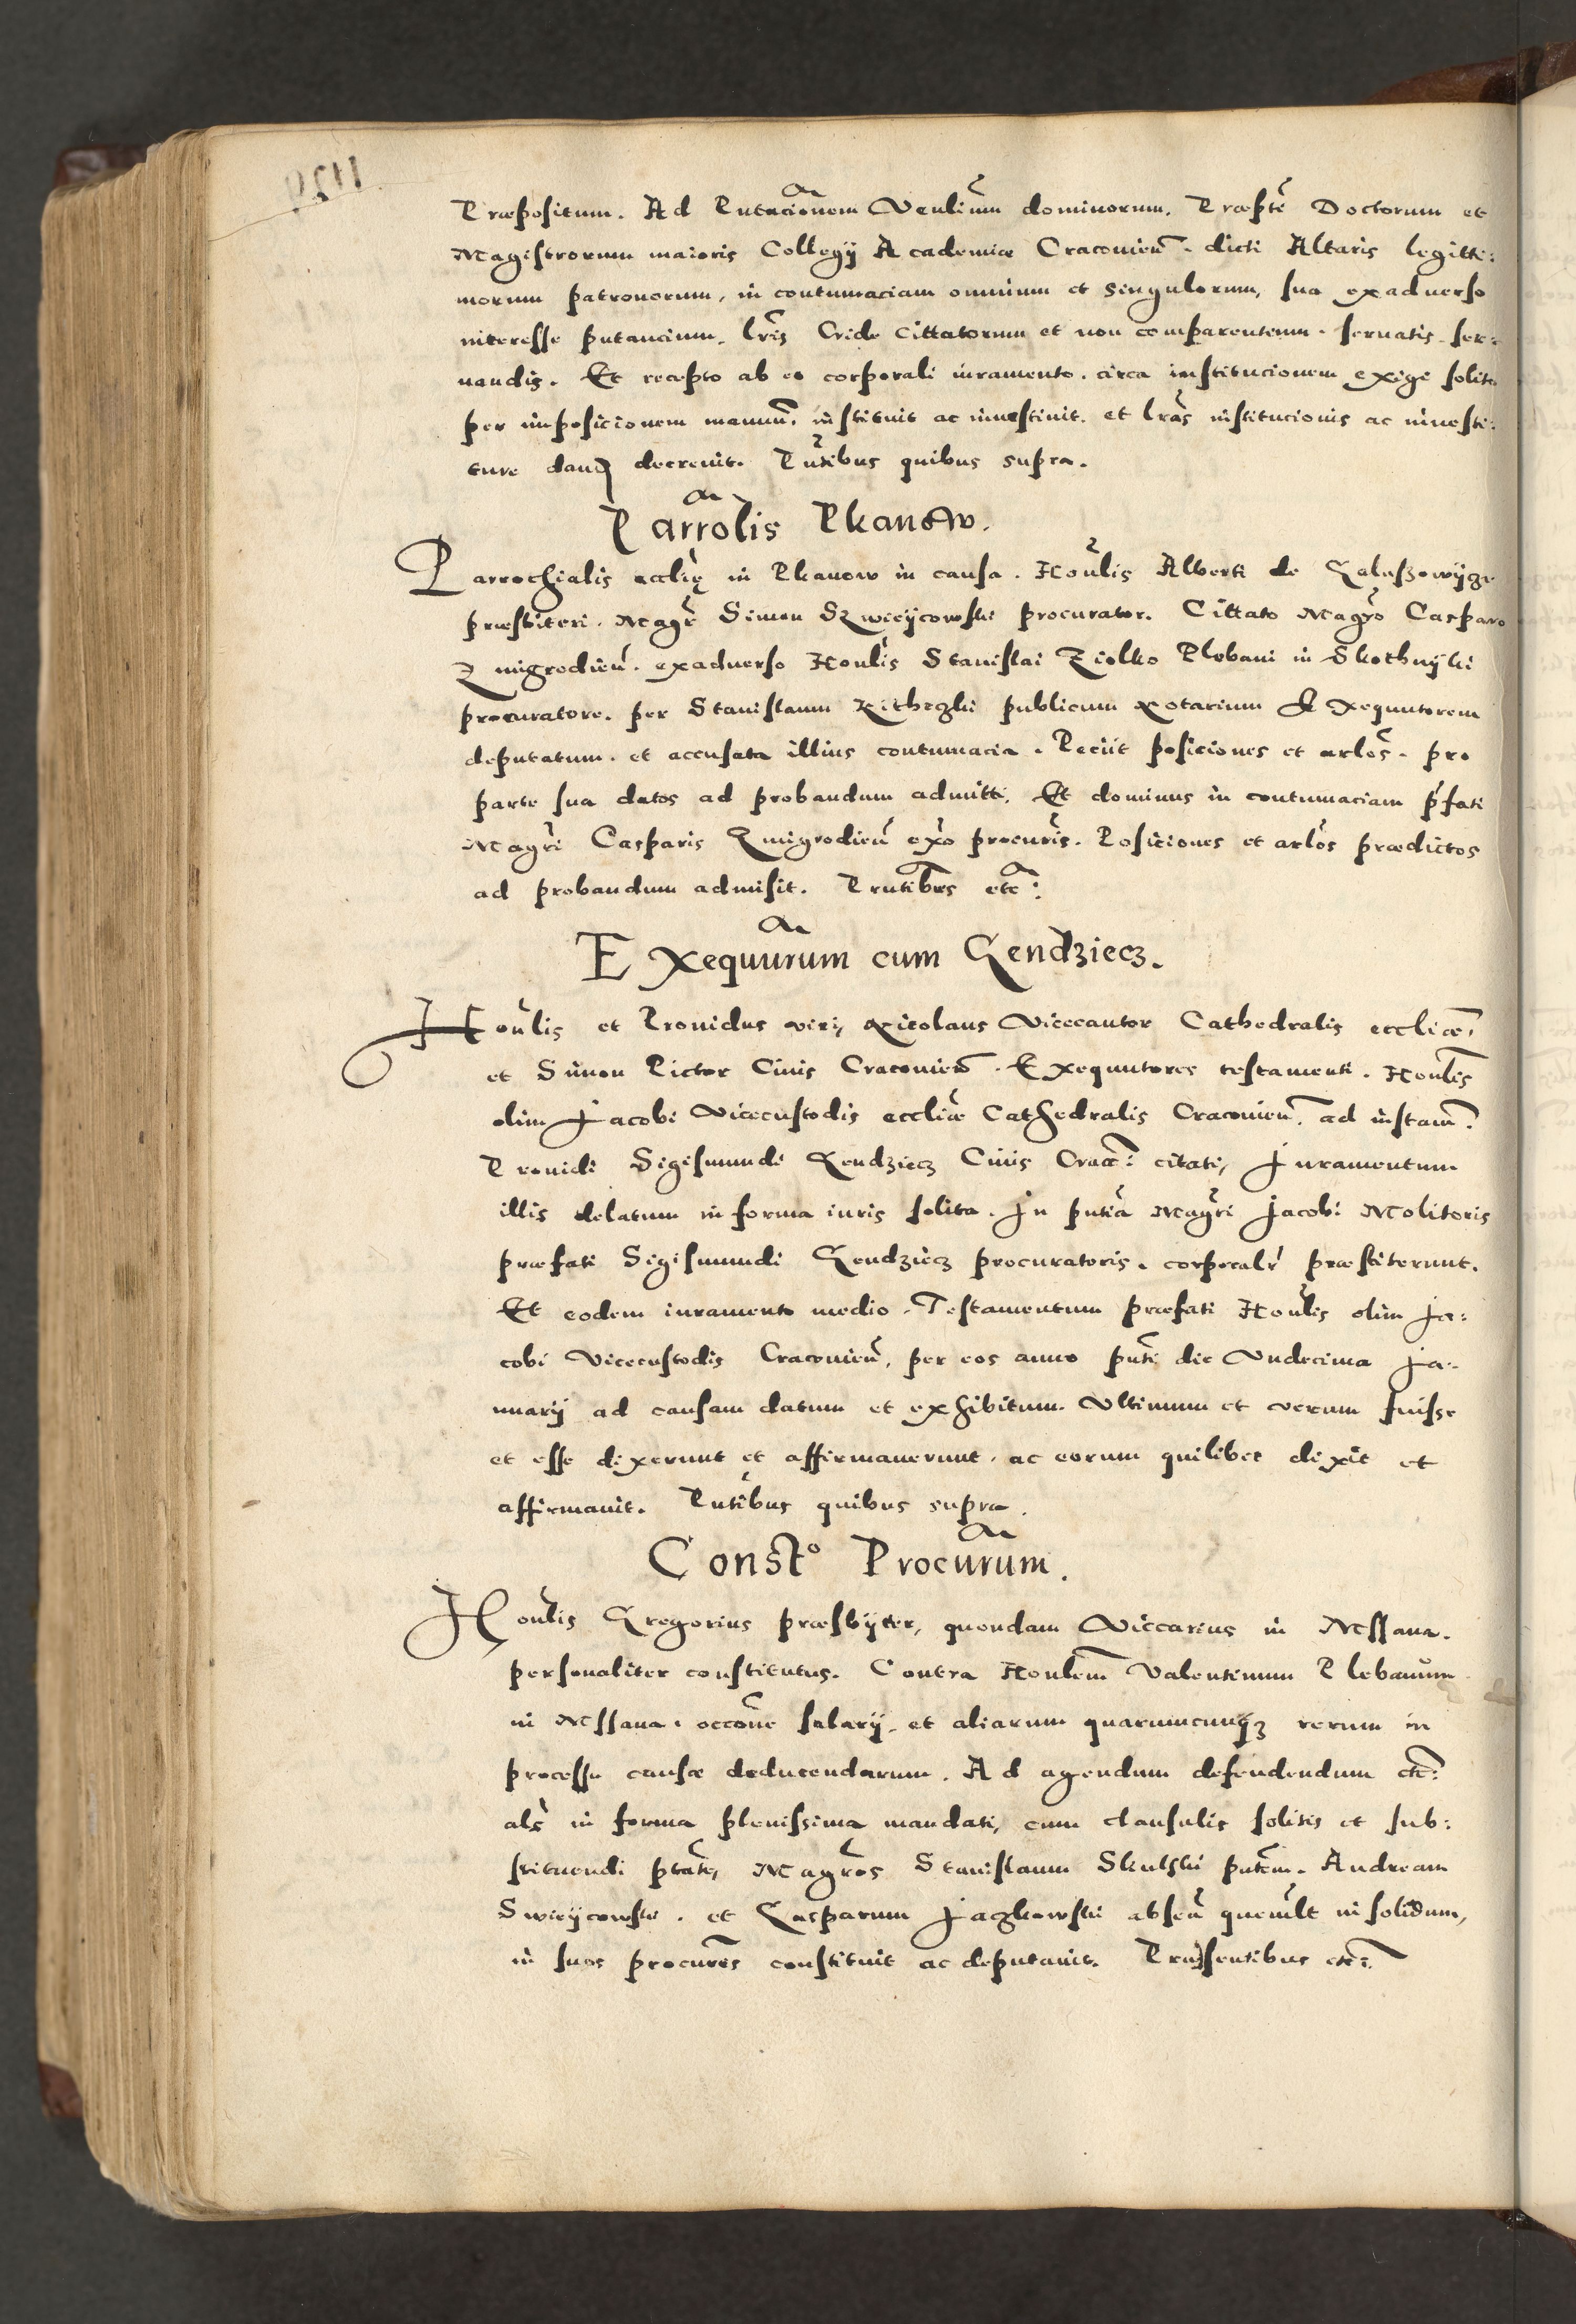 Præpositum. Ad Pntacionem Venlium dominorum. Præpte Doctorum et
Magistrorum maioris Collegÿ Academiæ Cracovien. dicti Altaris legitti:
morum patronorum, in contumaciam omnium et singulorum, sua exadverso
interesse putancium, lris Cride Cittatorum et non comparentium. servatis ser:
vandis. Et recepto ab eo corporali iuramento. circa institucionem exigi solito
per imposicionem manuu. instituit ac investivit. et lras institucionis ac investi:
ture dand decrevit. Pntibus quibus supra.
Parrolis Pkanow.
Parrochialis ecclię in Pkanow in causa. Honlis Alberti de
præsbiteri. Magr Simon Szwieÿcowski procurator. Cittato Magro Casparo
Zmigrodien. exadverso Honlis Stanislai Ziolko Plebani in Skothnÿki
procuratore. per Stanislaum publicum Notarium Exequutorem
deputatum. et accusata illius contumacia. Peciit posiciones et arlos. pro
parte sua datos ad probandum admitti. Et dominus in contumaciam pfati
Magri Casparis Zmigrodien exo procuris. Posiciones et arlos prædictos
ad probandum admisit. Prntibus etc:
Exequurum cum Gendziecz.
Honlis et Providus viri, Nicolaus Vicecantor Cathedralis eccliæ,
et Simon Pictor Civis Cracovien. Exequutores testamenti. Honlis
olim Jacobi Vicecustodis eccliæ Cathedralis Cracovien. ad instam:
Providi Sigismundi Gendziecz Civis Crac: citati, Juramentum
illis delatum in forma iuris solita. In pntia Magri Jacobi Molitoris
præfati Sigismundi Gendziecz procuratoris. corporalr præstiterunt.
Et eodem iuramento medio. Testamentum præfati Honlis olim Ja:
cobi Vicecustodis Cracovien, per eos anno pnti die Undecima Ja-
nuarÿ ad causam datum et exhibitum. Ultimum et verum fuisse
et esse dixerunt et affirmaverunt. ac eorum quilibet dixit et
affirmavit. Pntibus quibus supra.
Consto Procurum.
Honlis Gregorius præsbÿter, quondam Viccarius in Mssana.
personaliter constitutus. Contra Honlem Valentinum Plebanum
in Mssana. occone salarÿ. et aliarum quarumcunqz rerum in
processu causæ deducendarum. Ad agendum defendendum etc:
als in forma plenissima mandati, cum clausulis solitis et sub:
stituendi ptate, Magros Stanislaum Skulski pntem. Andream
Swieÿcowski. et Gasparum Jaczkowski absen quemlt in solidum,
in suos procures constituit ac deputavit. Præsentibus etc: